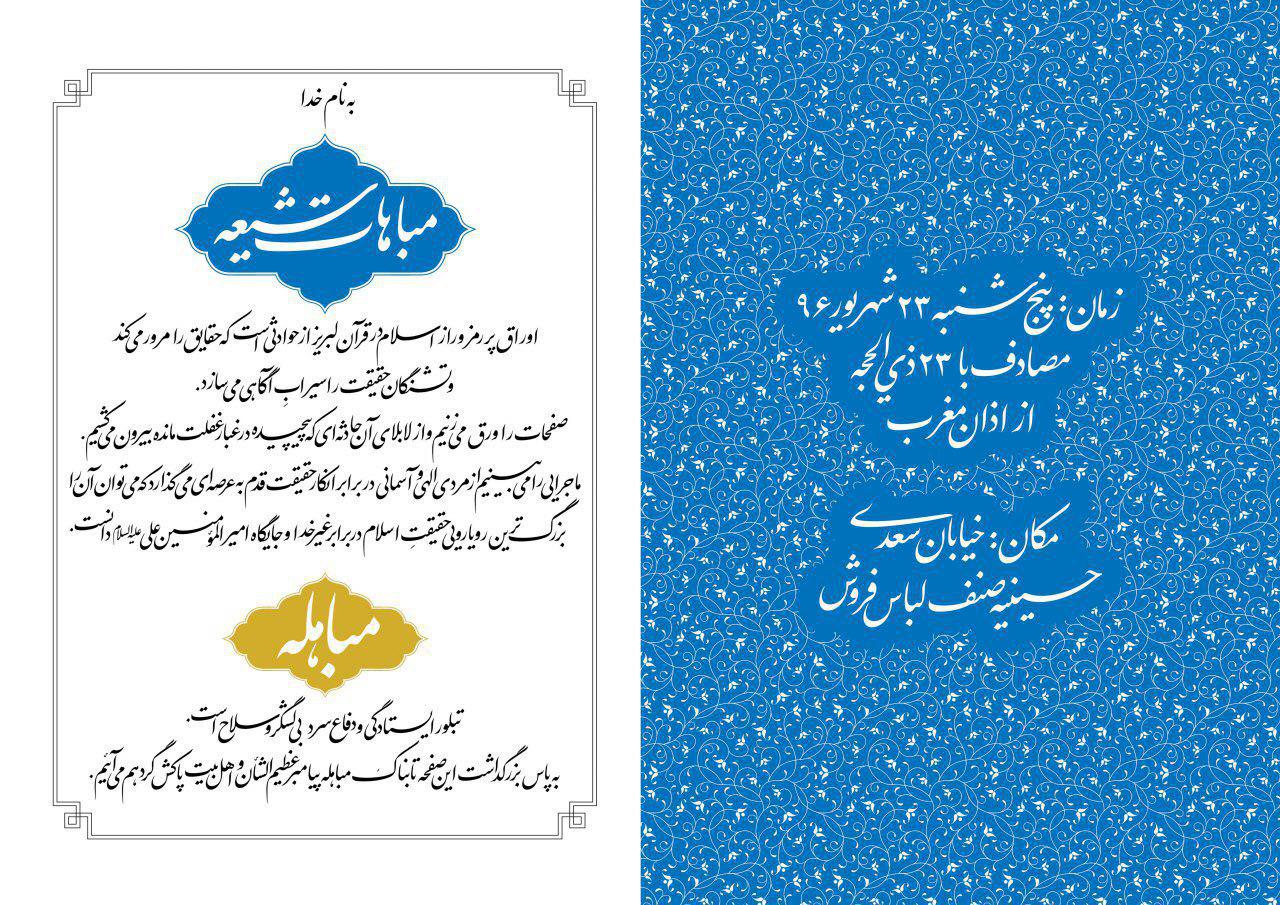 زمان: پنج شنبه ۲۳ شهریور ۹۶
مصادف با ۲۳ ذي الحجه
از اذان مغرب
مکان: خیابان سعدی
حسینیه صنف لباس فروش
به نام خدا
مباهات شیعه
اوراق پر رمز و راز اسلام در قرآن لبریز از حوادثی است که حقایق را مرور می کند
و تشنگان حقیقت را سیرابِ آگاهی می سازد.
صفحات را ورق می زنیم و از لابلای آن حادثه ای که پیچیده در غبار غفلت مانده بیرون می کشیم.
ماجرایی را می بینیم از مردی الهی و آسمانی در برابر انکار حقیقت قدم به عرصه ای می گذارد که می توان آن را
بزرگ ترین رویارویی حقیقتِ اسلام در برابر غیر خدا و جایگاه امیرالمؤمنین علی علیه السلام دانست.
مباهله
تبلور ایستادگی و دفاع سرد بی لشگر و سلاح است.
به پاس بزرگداشت این صفحه تابناک مباهله پیامبر عظیم الشأن و اهل بیت پاکش گرد هم می آئیم.